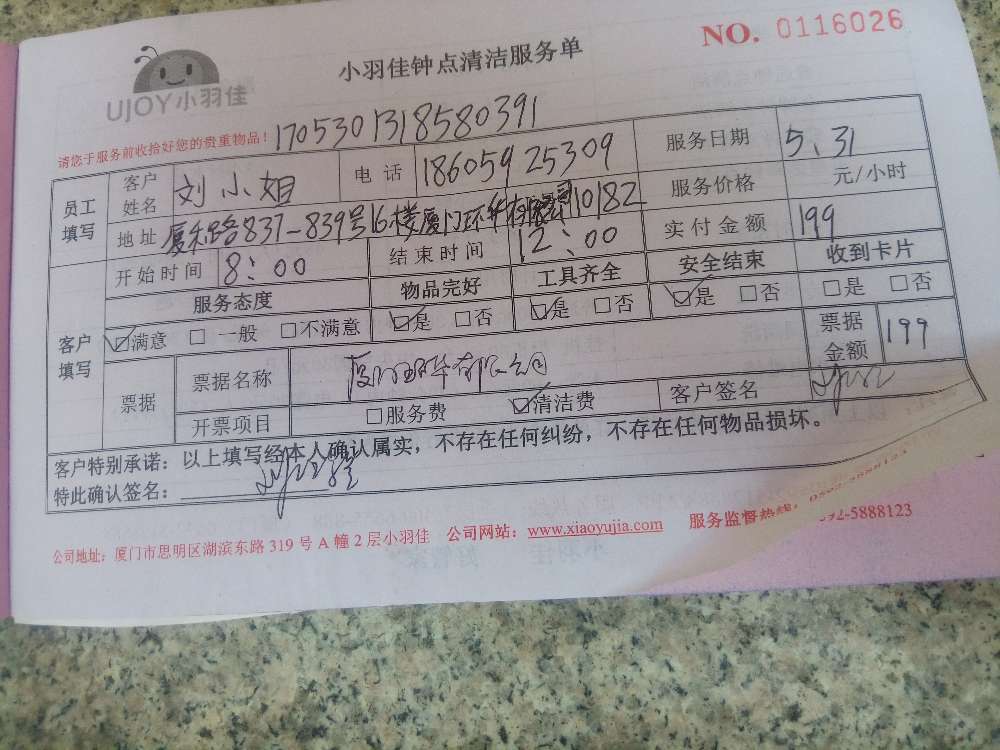 NO. 0116026
小羽佳钟点清洁服务单
UJOY小羽佳
请您于服务前收拾好您的贵重物品! 1705301318580391
员工填写 客户姓名 刘小姐 电话 18605925309 服务日期 5.31
地址 厦禾路837-839号16楼厦门环华有限公司10182 服务价格 元/小时
开始时间 8:00 结束时间 12:00 实付金额 199
服务态度 物品完好 工具齐全 安全结束 收到卡片
客户填写 ☑满意 □一般 □不满意 ☑是 □否 ☑是 □否 ☑是 □否 □是 □否
票据 票据名称 厦门环华有限公司 票据金额 199
开票项目 □服务费 ☑清洁费 客户签名
客户特别承诺:以上填写经本人确认属实,不存在任何纠纷,不存在任何物品损坏。
特此确认签名:
公司地址:厦门市思明区湖滨东路319号A幢2层小羽佳 公司网站:www.xiaoyujia.com 服务监督热线: 0592-5888123